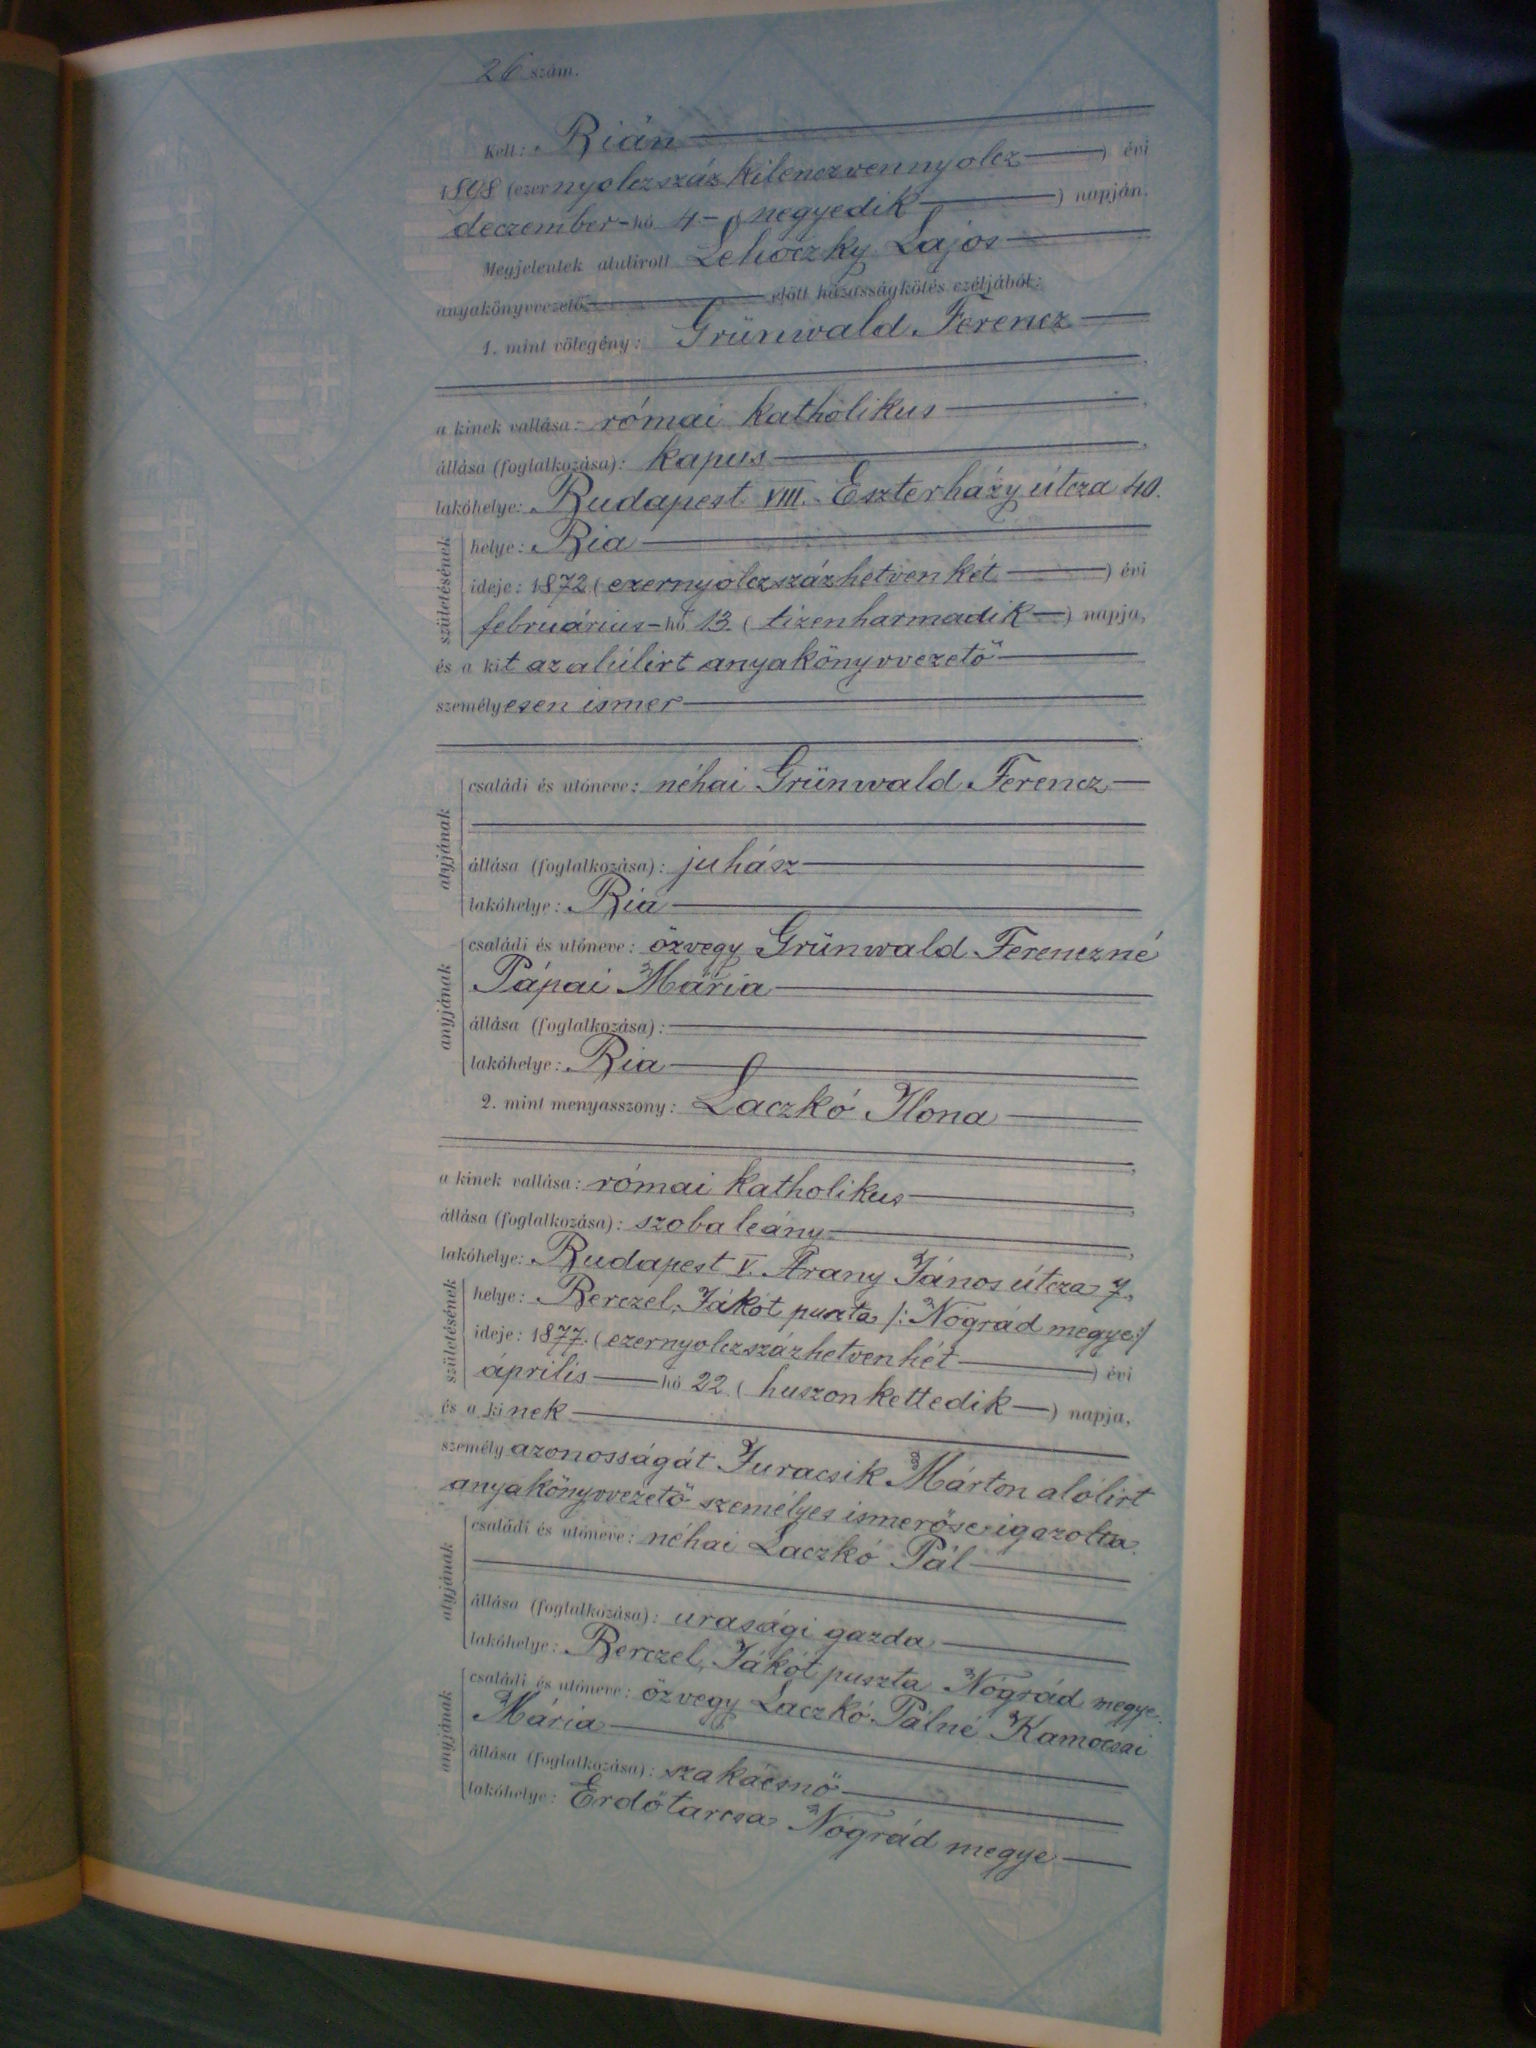 26 szám.
Kelt: Rián
1898 (ezernyolczszáz kilenczvennyolcz) évi
deczember-hó 4- negyedik) napján.
Megjelentek alulírott Lehoczky Lajos
anyakönyvvezető előtt házasságkötés czéljából:
1. mint vőlegény: Grünwald Ferencz
a kinek vallása: római katholikus,
állása (foglalkozása): kapus,
lakóhelye: Budapest VIII. Eszterházy útcza 40.
születésének
helye: Ria
ideje: 1872 (ezernyolczszázhetvenkét) évi
februáŕius-hó 13. (tizenharmadik) napja,
és a kit az alúlírt anyakönyvvezető
személyesen ismer
atyjának
családi és utóneve: néhai Grünwald Ferencz
állása (foglalkozása): juhász
lakóhelye: Ria
anyjának
családi és utóneve: özvegy Grünwald Ferenczné
Pápai Mária
állása (foglalkozása):
lakóhelye: Ria
2. mint menyasszony: Laczkó Ilona
a kinek vallása: római katholikus,
állása (foglalkozása): szobaleány,
lakóhelye: Budapest V. Arany János útcza 7,
születésének
helye: Berczel, Jákót puszta /: Nógrád megye:/
ideje: 1877. (ezernyolczszázhetvenhét) évi
április hó 22. (huszonkettedik) napja,
és a kinek
személyazonosságát Juracsik Márton alólírt
anyakönyvvezető személyes ismerőse igazolta.
atyjának
családi és utóneve: néhai Laczkó Pál
állása (foglalkozása): urasági gazda
lakóhelye: Berczel, Jákót puszta Nógrád megye.
anyjának
családi és utóneve: özvegy Laczkó Pálné Kamocsai
Mária
állása (foglalkozása): szakácsnő
lakóhelye: Erdőtarcsa Nógrád megye